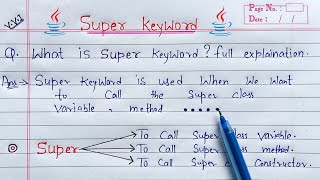 V.V.I
Super Keyword
Page No.:
Date: / /
Q. What is Super Keyword? full explaination.
Ans → Super Keyword is used When We Want
to Call the Super Class
Variable, method ......
To Call Super Class Variable.
Super To Call Super Class method.
To Call Super Constructor.